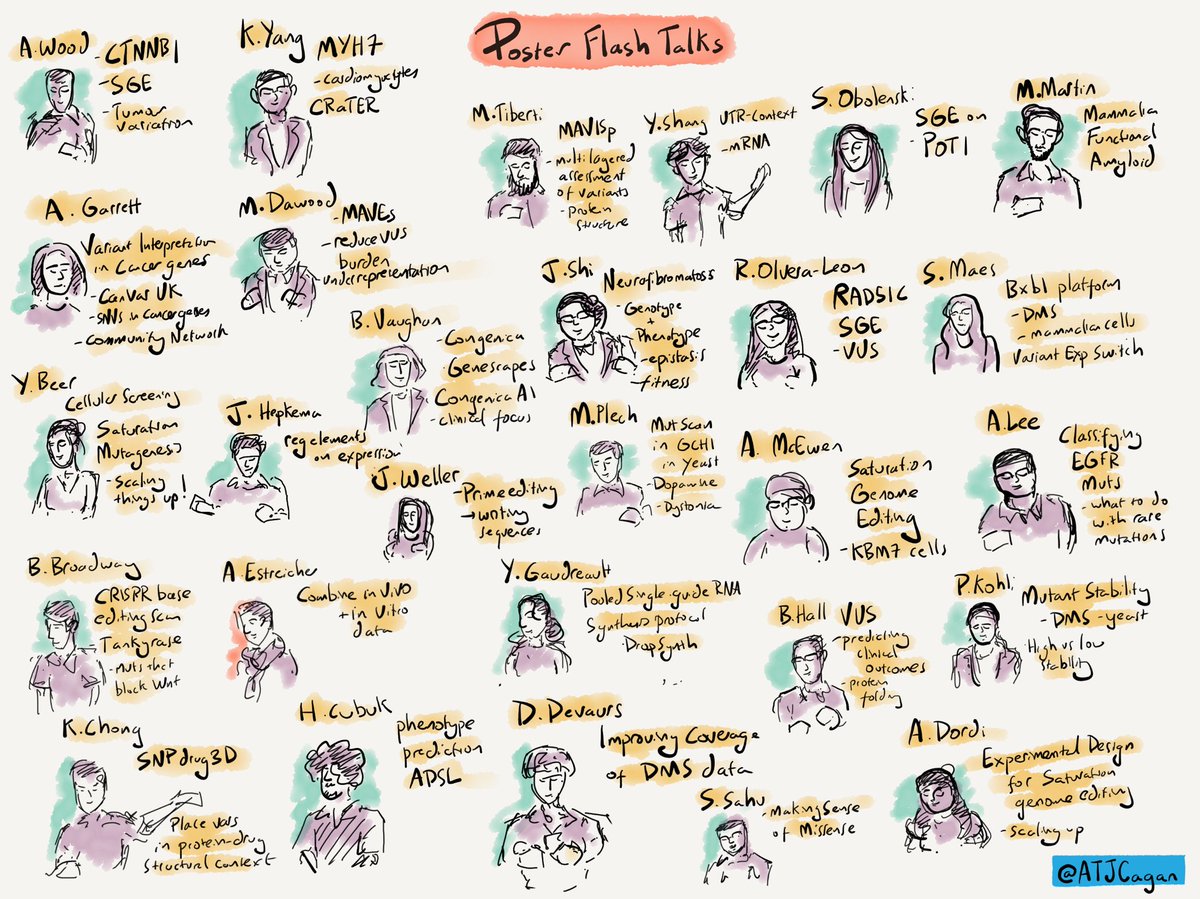 Poster Flash Talks
A. Wood
- CTNNB1
- SGE
- Tumor
variation
K. Yang
MYH7
- Cardiomyocytes
CRaTER
M. Tiberti
MAVISp
- multilayered
assessment
of variants
- protein
structure
Y. Shang
UTR-Context
- mRNA
S. Obolenski
SGE on
POT1
M. Martin
Mammalia
Functional
Amyloid
A. Garrett
Variant Interpretation
in Cancer genes
- CanVar UK
- SNVs in cancer genes
- Community Network
M. Dawood
- MAVEs
- reduce VUS
burden
underrepresentation
B. Vaughan
- Congenica
Genescapes
Congenica AI
- clinical focus
J. Shi
Neurofibromatosis
- Genotype
+
Phenotype
- epistasis
- fitness
R. Olvera-Leon
RAD51C
SGE
- VUS
S. Maes
Bxb1 platform
- DMS
- mammalia cells
Variant Exp Switch
Y. Beer
Cellular Screening
Saturation
Mutagenesis
- Scaling
things up!
J. Hepkema
reg elements
on expression
J. Weller
- Prime editing
→ writing
sequences
M. Plech
Mut Scan
in GCH1
in Yeast
- Dopamine
- Dystonia
A. McEwen
Saturation
Genome
Editing
- KBM7 cells
A. Lee
Classifying
EGFR
Muts
- what to do
with rare
mutations
B. Broadway
CRISPR base
editing scan
Tankyrase
- muts that
block Wnt
A. Estreicher
Combine in vivo
+ in vitro
data
Y. Gaudreault
Pooled Single-guide RNA
Synthesis protocol
DropSynth
B. Hall
VUS
- predicting
clinical
outcomes
- protein
folding
P. Kohli
Mutant Stability
- DMS - yeast
- High vs low
stability
K. Chong
SNPdrug3D
Place vars
in protein-drug
structural context
H. Cubuk
phenotype
prediction
ADSL
D. Devaurs
Improving Coverage
of DMS data
S. Sahu
- Making Sense
of Missense
A. Dordi
Experimental Design
for Saturation
genome editing
- scaling up
@ATJCagan